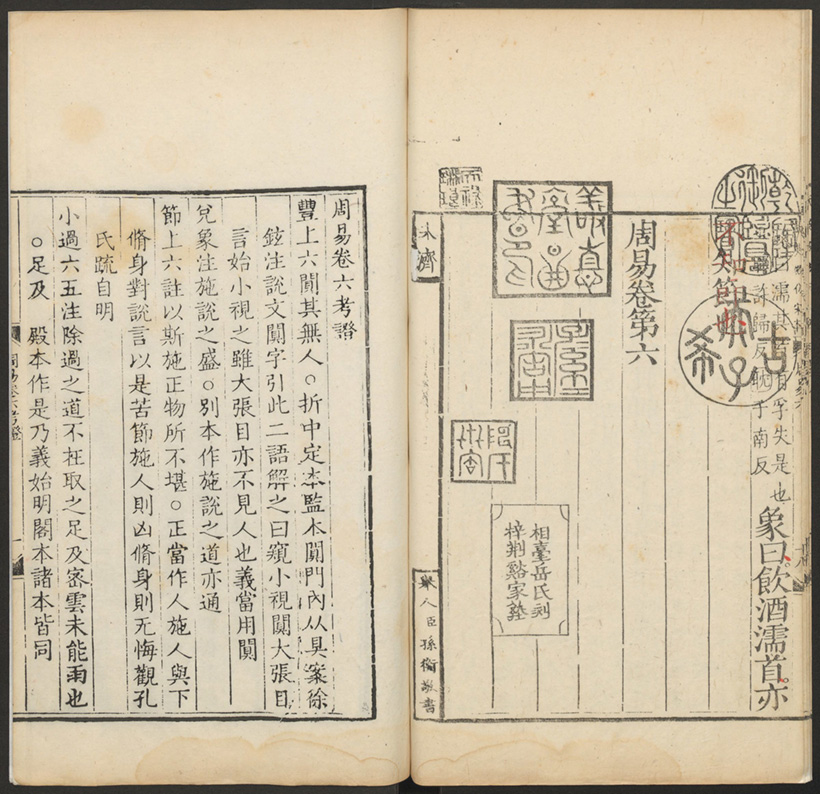 象曰飲酒濡首亦
不知節也
濡其首有孚失是也
許歸反
眈于南反
周易卷第六
相臺岳氏刻
梓荆谿家塾
未濟
舉人臣孫衡敬書
周易卷六考證
豐上六闃其無人○折中定本監本闃門內从具案徐
鉉注說文闃字引此二語解之曰窺小視闃大張目
言始小視之雖大張目亦不見人也義當用闃
兌象注施說之盛○別本作施說之道亦通
節上六註以斯施正物所不堪○正當作人施人與下
脩身對說言以是苦節施人則凶脩身則无悔觀孔
氏疏自明
小過六五注除過之道不在取之足及密雲未能雨也
○足及 殿本作是乃義始明閣本諸本皆同
周易卷六考證